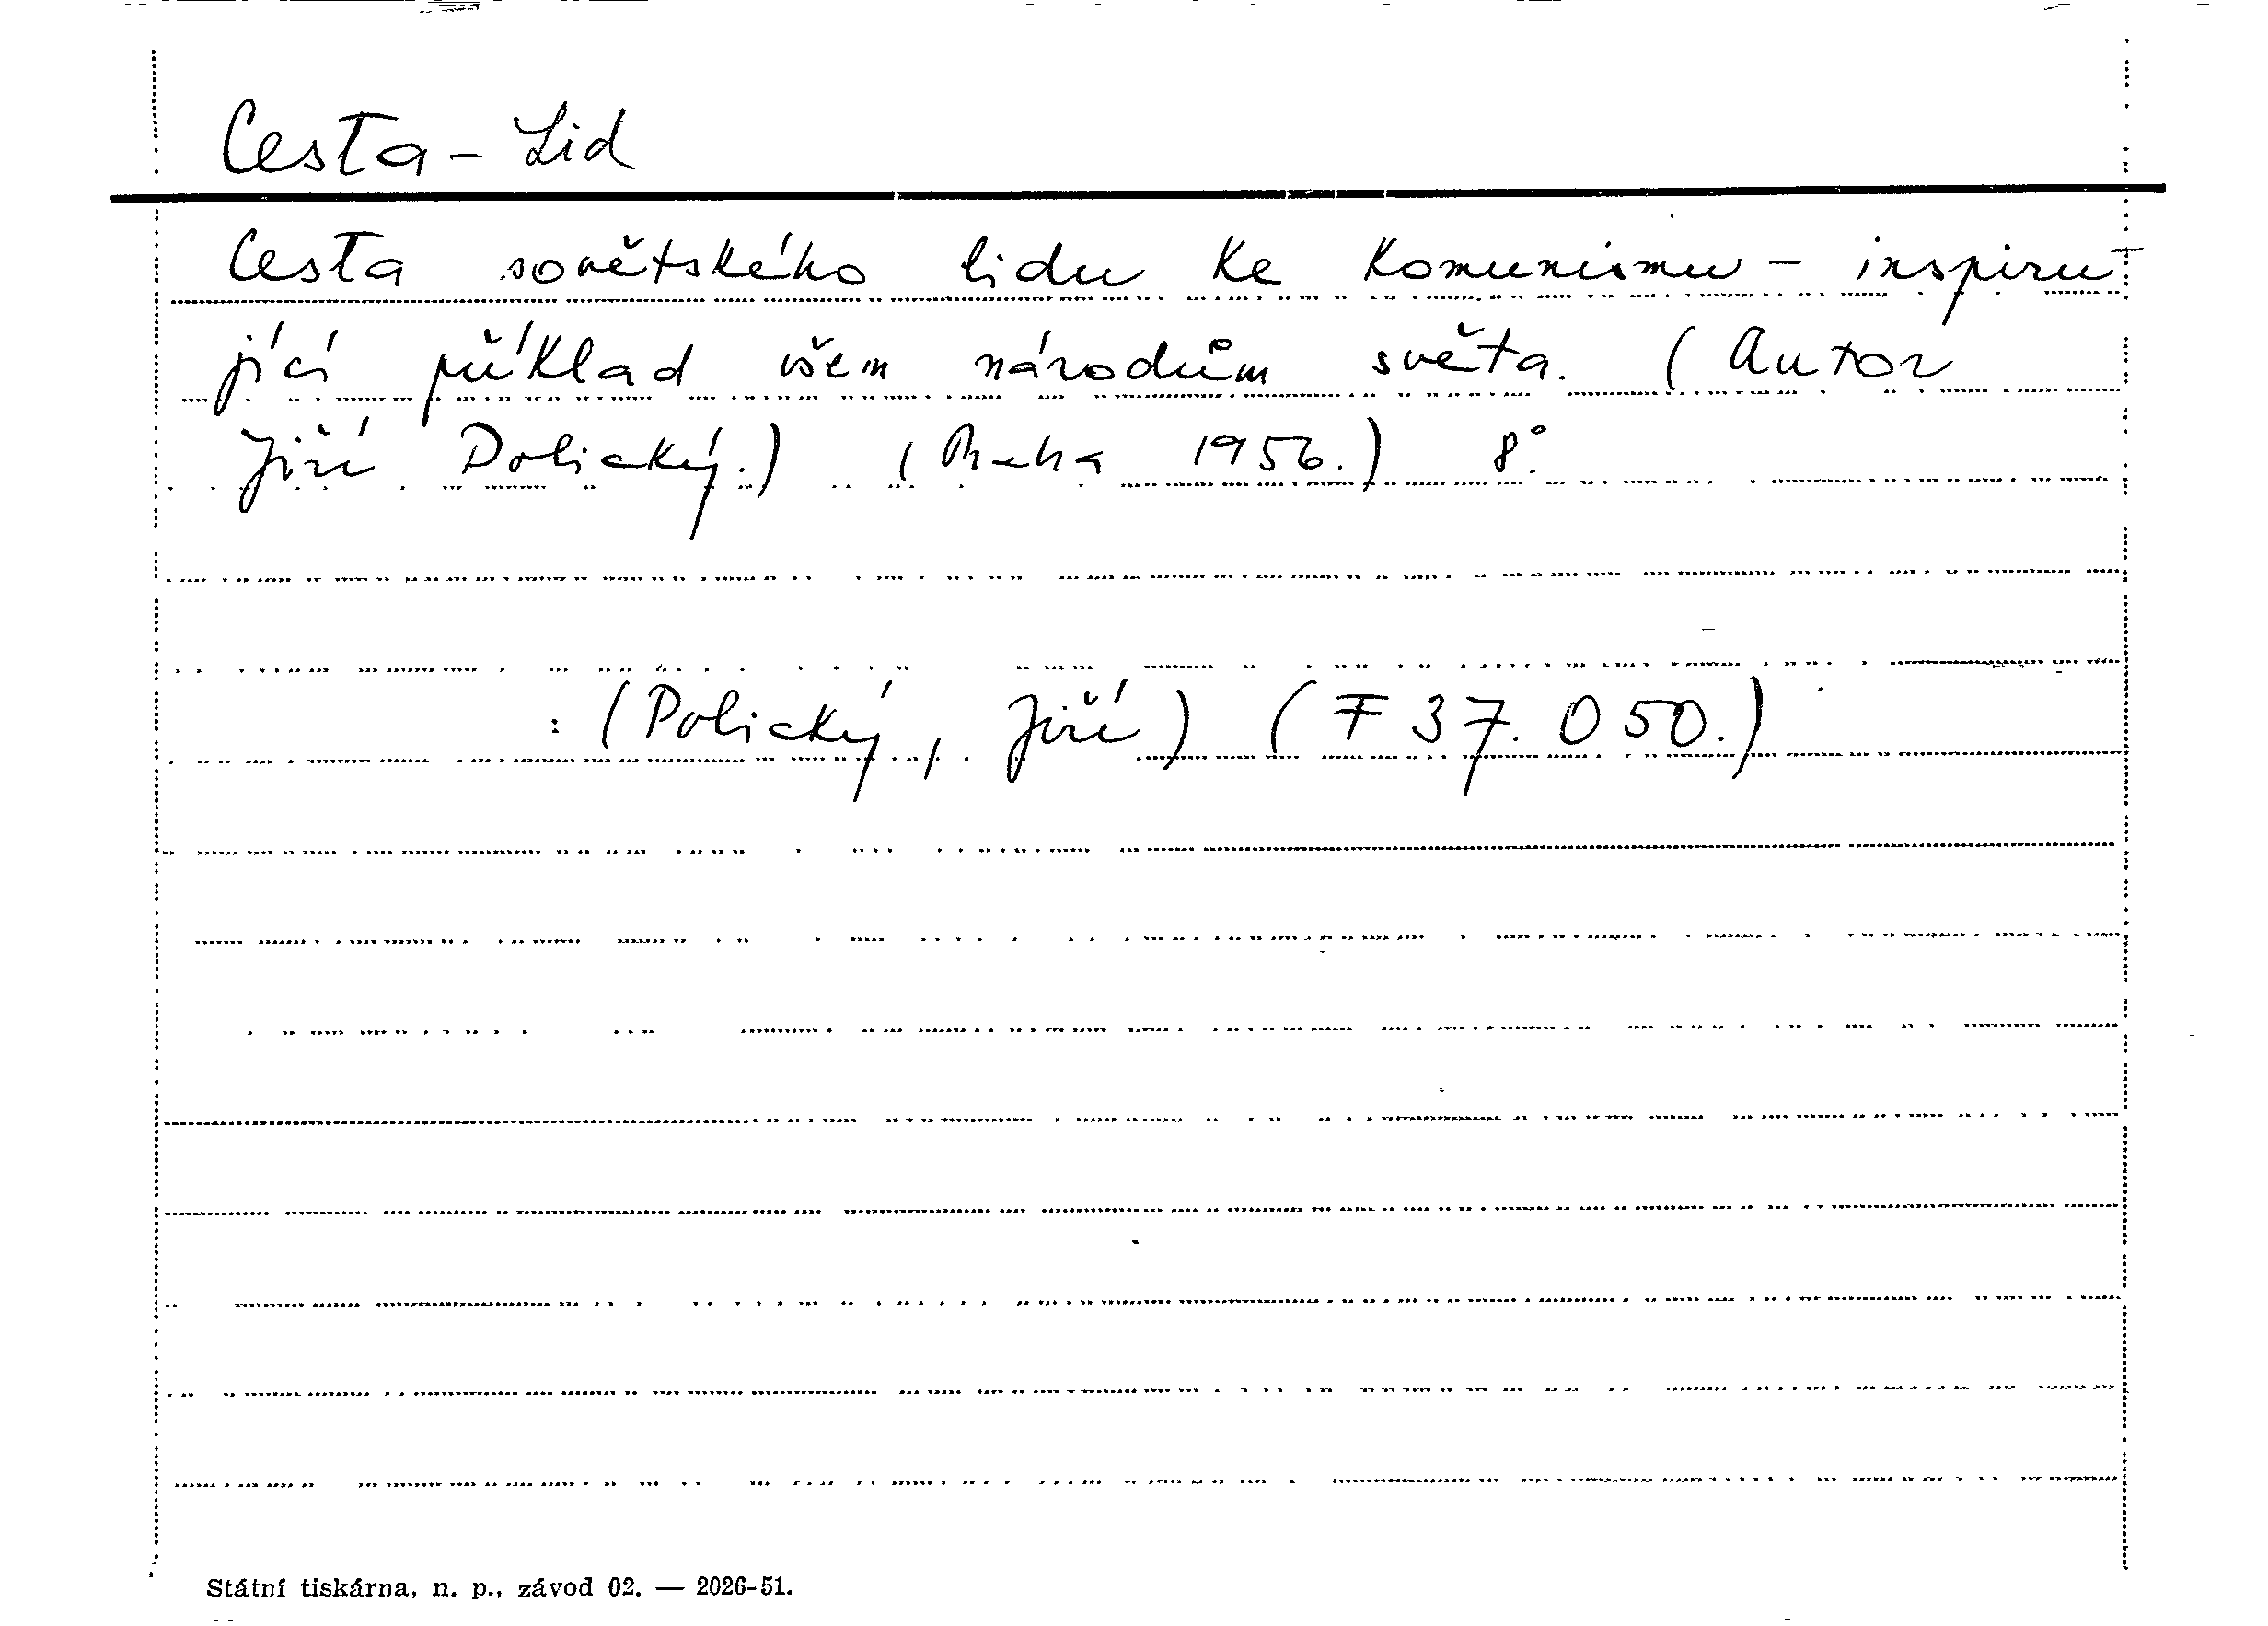 Cesta - Lid
Cesta sovětského lidu ke komunismu - inspiru-
jící příklad všem národům světa. (Autor
Jiří Polický.) (Praha 1956.) 8°.
: (Polický, Jiří) (F 37.050.)
Státní tiskárna, n. p., závod 02. — 2026-51.